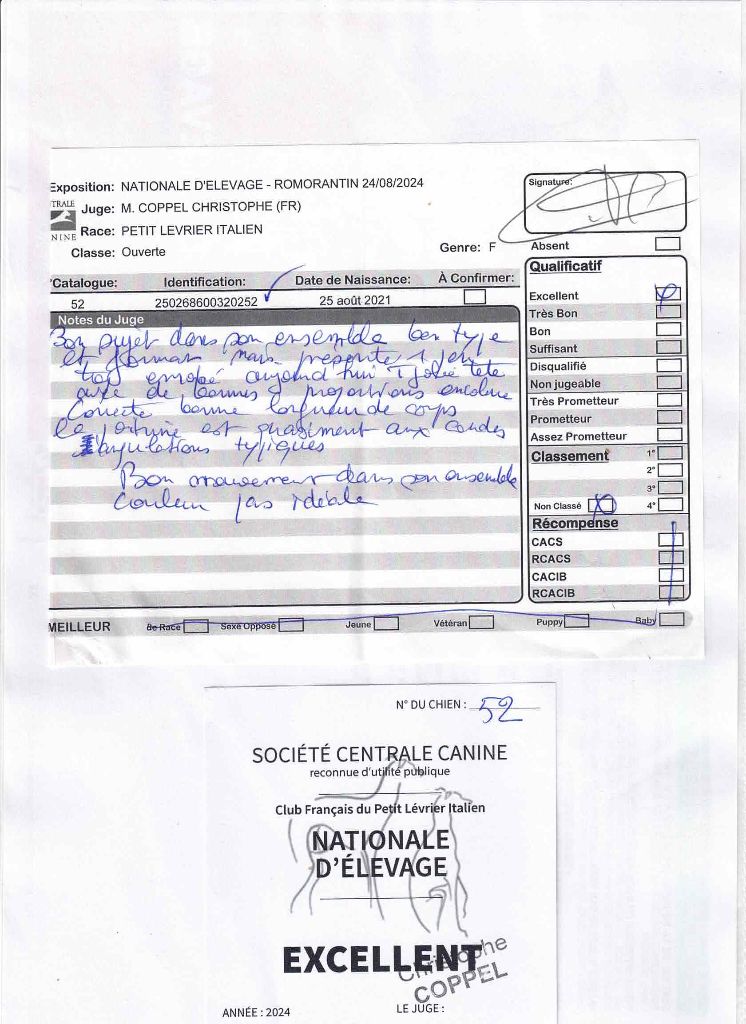 Exposition: NATIONALE D'ELEVAGE - ROMORANTIN 24/08/2024
Signature:
TRALE
Juge: M. COPPEL CHRISTOPHE (FR)
Race: PETIT LEVRIER ITALIEN
NINE
Classe: Ouverte
Genre: F
Absent
Catalogue: Identification: Date de Naissance: À Confirmer:
52 250268600320252 25 août 2021
Qualificatif
Excellent
Très Bon
Bon
Suffisant
Disqualifié
Non jugeable
Très Prometteur
Prometteur
Assez Prometteur
Classement 1°
2°
3°
Non Classé 4°
Récompense
CACS
RCACS
CACIB
RCACIB
Notes du Juge
Bon sujet dans son ensemble bon type
et format mais présenté 1 peu
trop enrobé aujourd'hui 1 jolie tête
avec de bonnes proportions encolure
Correcte bonne longueur de corps
la poitrine est quasiment aux coudes
angulations typiques
Bon mouvement dans son ensemble
Couleur pas idéale
MEILLEUR de Race Sexe Opposé Jeune Vétéran Puppy Baby
N° DU CHIEN : 52
SOCIÉTÉ CENTRALE CANINE
reconnue d'utilité publique
Club Français du Petit Lévrier Italien
NATIONALE
D'ÉLEVAGE
EXCELLENT
Christophe
COPPEL
ANNÉE : 2024 LE JUGE :